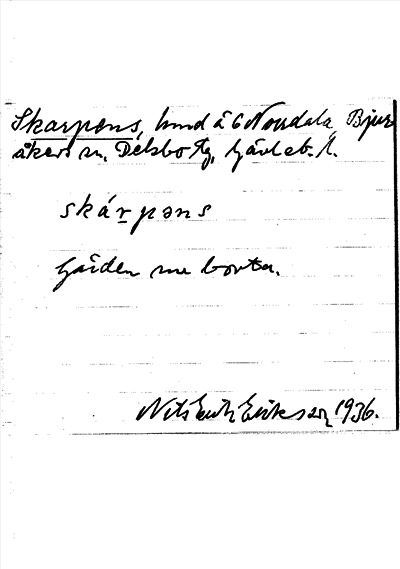 Skarpens, hmd å 6 Norrdala, Bjur
åkers sn, Delsbo tg, Gävleb. l.
skárpəns
Gården nu borta.
Nils Erik Eriksson 1936.